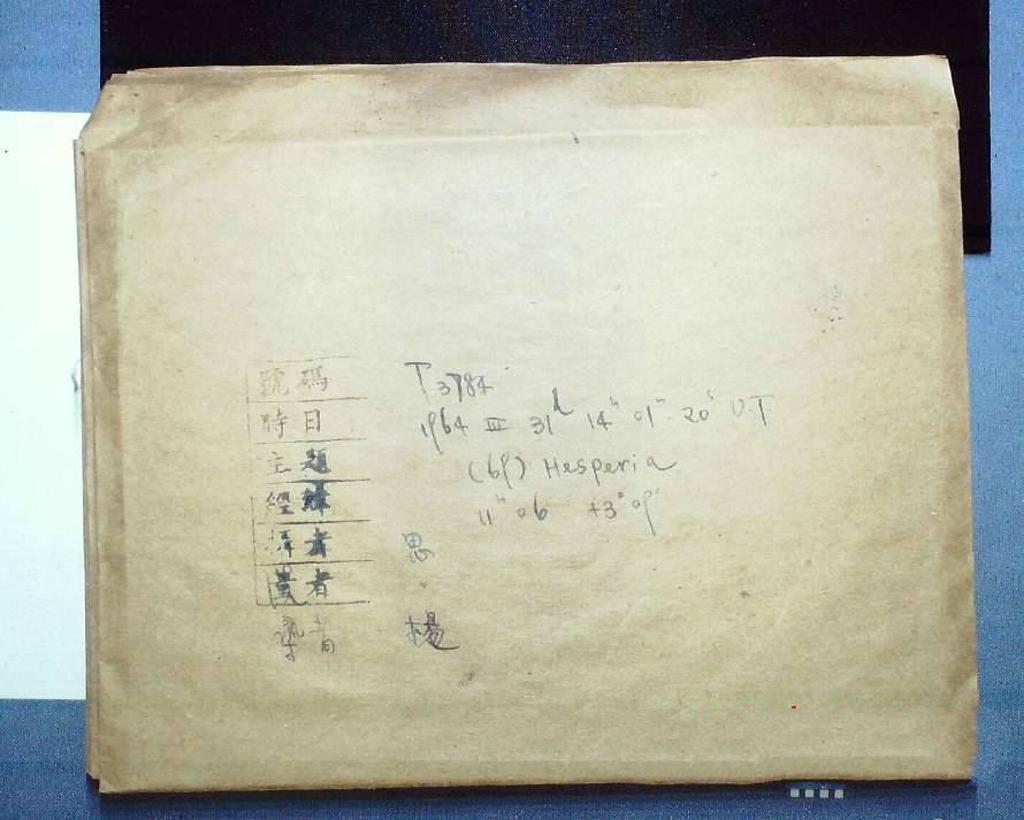 號碼 T 3784
時日 1964 III 31d 14h 01m 20s U.T
主題 (69) Hesperia
經緯 11h 06 +3° 09'
攝者 思
者
楊